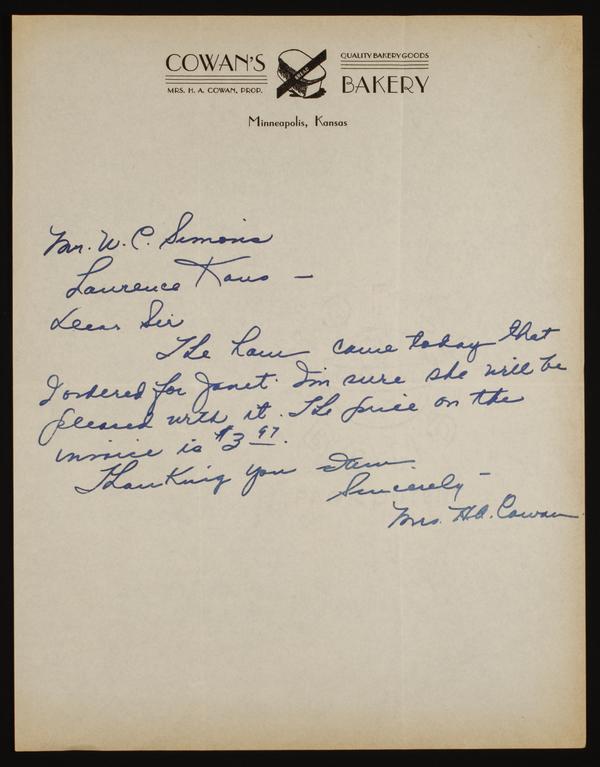 COWAN'S
MRS. H. A. COWAN, PROP.
BREAD
QUALITY BAKERY GOODS
BAKERY
Minneapolis, Kansas
Mr. W. C. Simons
Lawrence Kans —
Dear Sir
The ham came today that
I ordered for Janet. I'm sure she will be
pleased with it. The price on the
invoice is $3 97.
Thanking you
Sincerely —
Mrs. H.A. Cowan